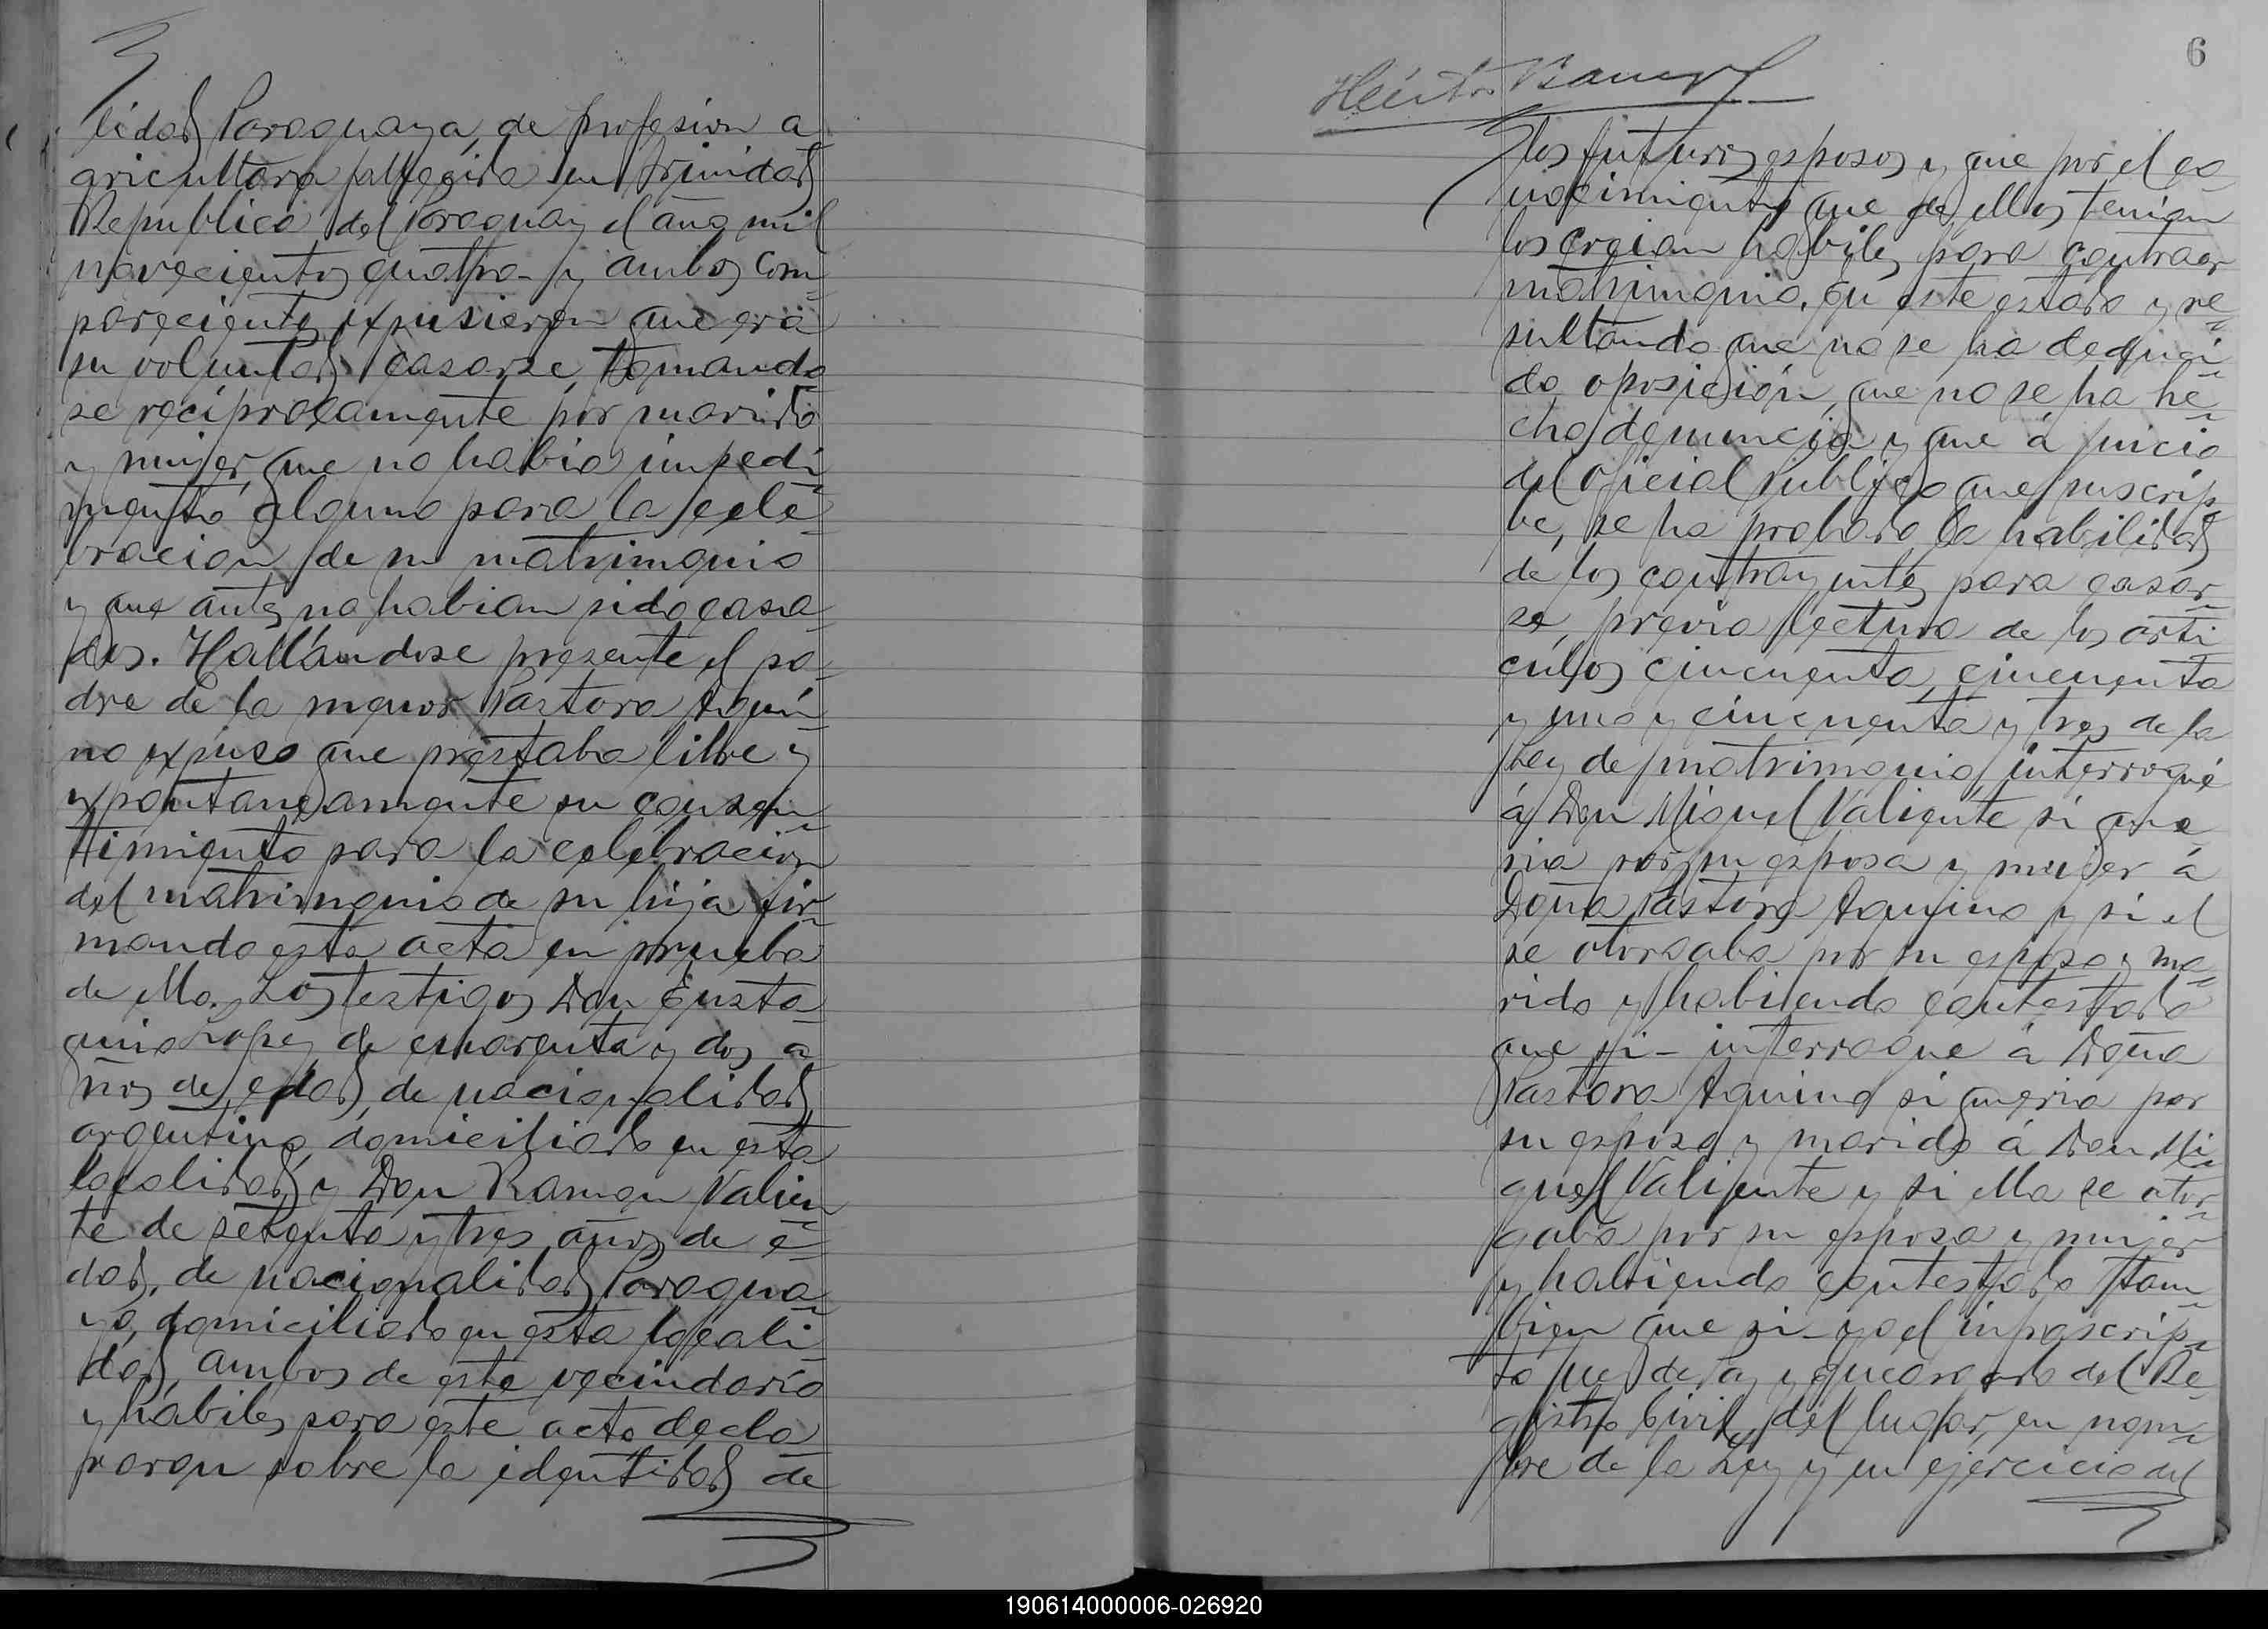 lidad Paraguaya, de profesion a
gricultora fallecida en Trinidad
Republica del Paraguay el año mil
novecientos cuatro - y ambos com
parecientes expusieron que era
su voluntad casarse, tomando
se reciprocamente por marido
y mujer, que no habia impedi
mento alguno para la cele
bracion de su matrimonio
y que antes no habian sido casa
dos. Hallándose presente el pa
dre de la menor Pastora Aqui
no expuso que prestaba libre y
expontaneamente su consen
timiento para la celebracion
del matrimonio de su hija fir
mando esta acta en prueba
de ello. Los testigos Don Eusta
quio Lopez de cuarenta y dos a
ños de edad, de nacionalidad
argentino, domiciliado en esta
localidad y Don Ramon Valien
te de setenta y tres años de e
dad, de nacionalidad Paragua
yo, domiciliado en esta locali
dad, ambos de este vecindario
y habiles para este acto decla
raron sobre la identidad de
6
Héctor
los futuros esposos y que por el co
nocimiento que de ellos tenian
los creian habiles para contraer
matrimonio. En este estado y re
sultando que no se ha deduci
do oposición, que no se ha he
cho denuncia y que á juicio
del Oficial Publico que suscrip
be, se ha probado la habilidad
de los contrayentes para casar
se, previa lectura de los arti
culos cincuenta, cincuenta
y uno y cincuenta y tres de la
Ley de matrimonio, interrogué
á Don Miguel Valiente si que
ria por su esposa y mujer á
Doña Pastora Aquino y si el
se otorgaba por su esposo y ma
rido y habiendo contestado
que si - interrogue á Doña
Pastora Aquino si queria por
su esposo y marido á Don Mi
guel Valiente y si ella se otor
gaba por su esposa y mujer
y habiendo contestado tam
bien que si - yo el infrascrip
to Juez de Paz y encargado del Re
gistro Civil del lugar, en nom
bre de la Ley y en ejercicio del
190614000006-026920